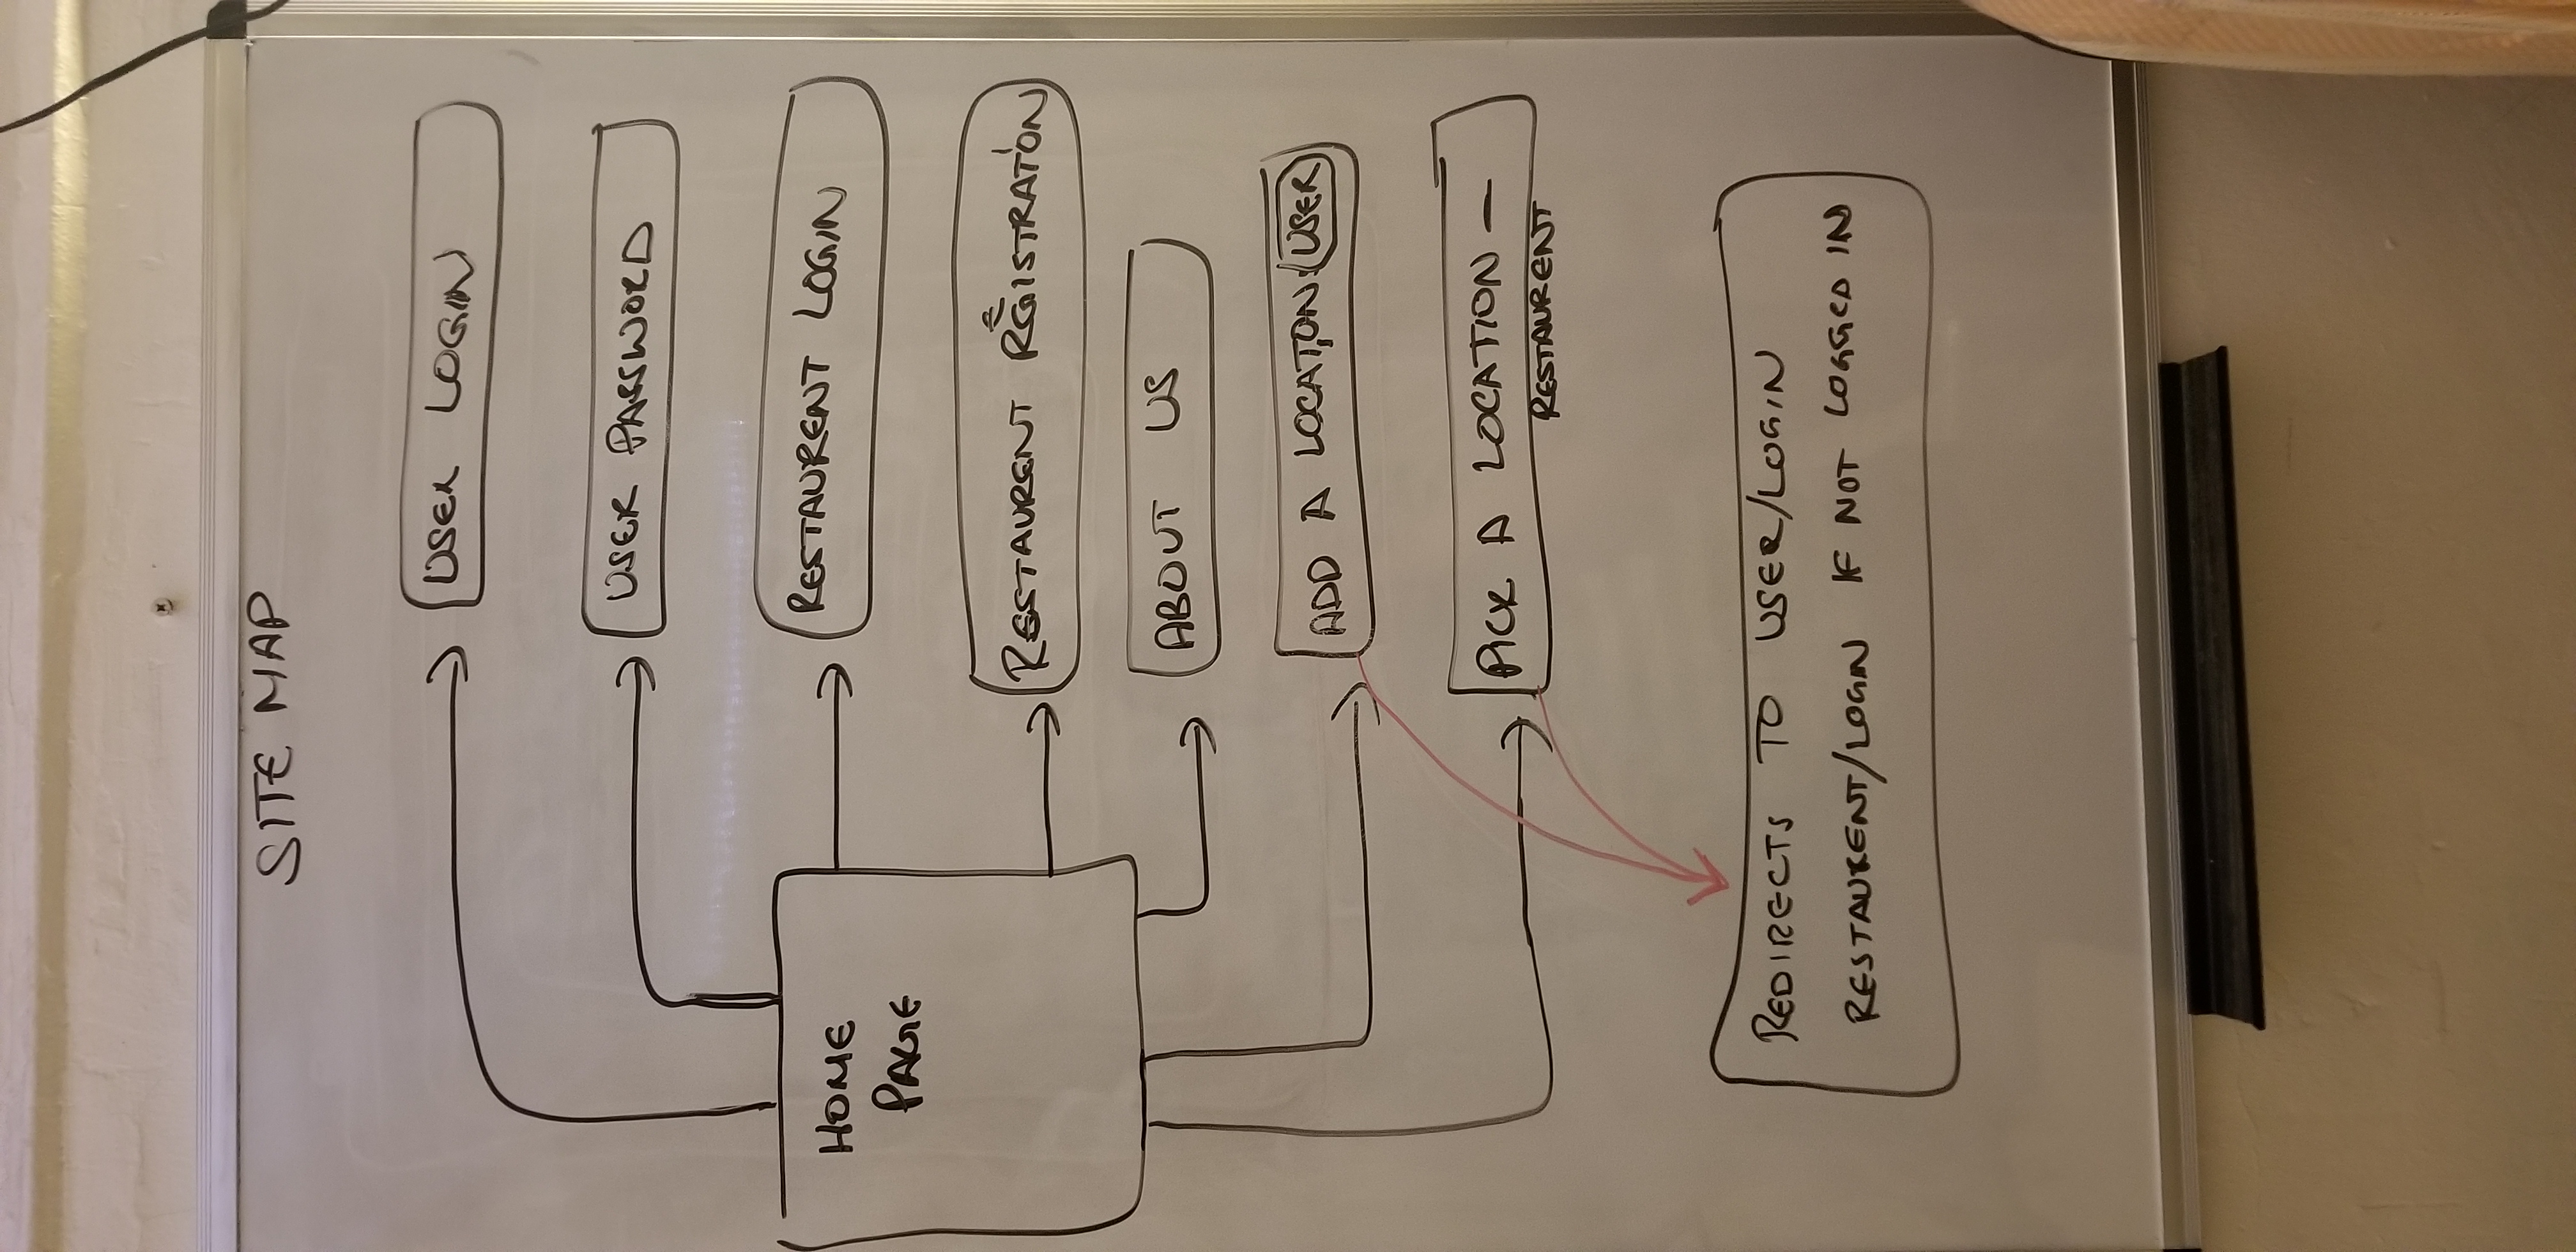 SITE MAP
USER LOGIN
USER PASSWORD
HOME
PAGE
RESTAURENT LOGIN
RESTAURENT REGISTRATION
ABOUT US
ADD A LOCATION: USER
PICK A LOCATION —
RESTAURENT
REDIRECTS TO USER/LOGIN
RESTAURENT/LOGIN IF NOT LOGGED IN